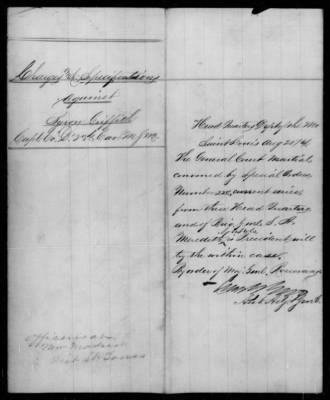 Charges & Specifications
Against
Byron Griffith
Capt Co. 2nd Cav M.S.M.
Officer in
New Madrid
Saint Louis
Head Quarters Dept of the Mo
Saint Louis Aug
The General Court Martial
convened by Special Orders
Number current series
from these Head Quarters
and of Brig Genl. S. A.
Meredith is President will
try the within case.
By order of Maj. Genl. Rosecrans
Asst Adjt Genl